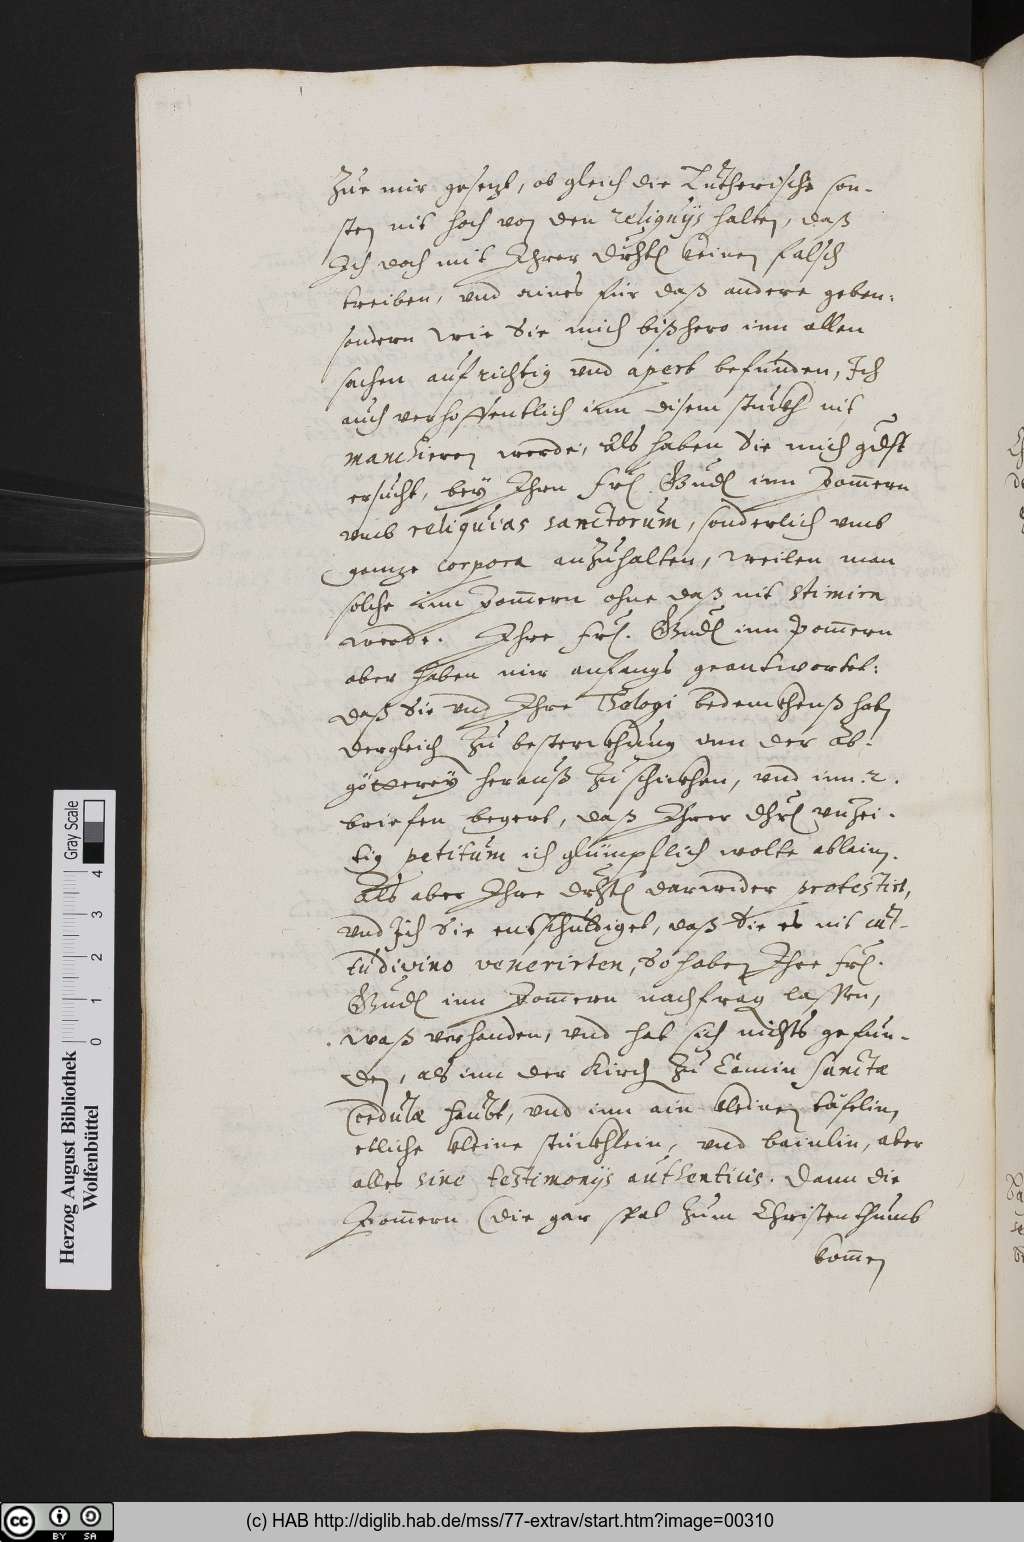 zue mir gesezt, ob gleich die Lutherische son-
sten nit hoch von den reliquijs halten, daß
Ich doch mit Ihrer Drhtl keinen falsch
treiben, vnd aines für daß andere geben:
sondern wie Sie mich bißhero inn allen
sachen aufrichtig vnd apert befunden, Ich
auch verhoffentlich inn disem stuckh nit
manchieren werde, Als haben Sie mich gdst
ersucht, bey Ihrn Frl Gndl inn Pom̄ern
vmb reliquias sanctorum, sonderlich vmb
gannze corpora anzuhalten, weilen man
solche inn Pom̄ern ohne daß nit stimirn
werde. Ihre Frl. Gndl inn Pom̄ern
aber haben mir anfangs geantwortet:
daß Sie vnd Ihre Theologi bedenckhenß haben
dergleich zu besterckhung der Ab-
götterey herauß zu schickhen, vnd inn .2.
briefen begert, daß Ihrer Dhrl vnzei-
tig petitum ich glümpflich wolte ablain.
Als aber Ihre Drhtl darwider protestirt,
vnd Ich Sie entschuldiget, daß Sie es nit cul-
tu divino venerirten, So haben Ihre Frl.
Gndl inn Pom̄ern nachfrag lassen,
waß verhanden, vnd hat sich nichts gefun-
den, als inn der Kirch zu Camin Sanctæ
Cordulæ haubt, vnd inn ain kleinen täfelin,
etliche kleine stückhlein, vnd bainlin, aber
alles sine testimonijs authenticis. Dann die
Pom̄ern (die gar spat zum Christenthumb
kom̄en
Herzog August Bibliothek
Wolfenbüttel
0 1 2 3 4
Gray Scale
cc BY SA
(c) HAB http://diglib.hab.de/mss/77-extrav/start.htm?image=00310